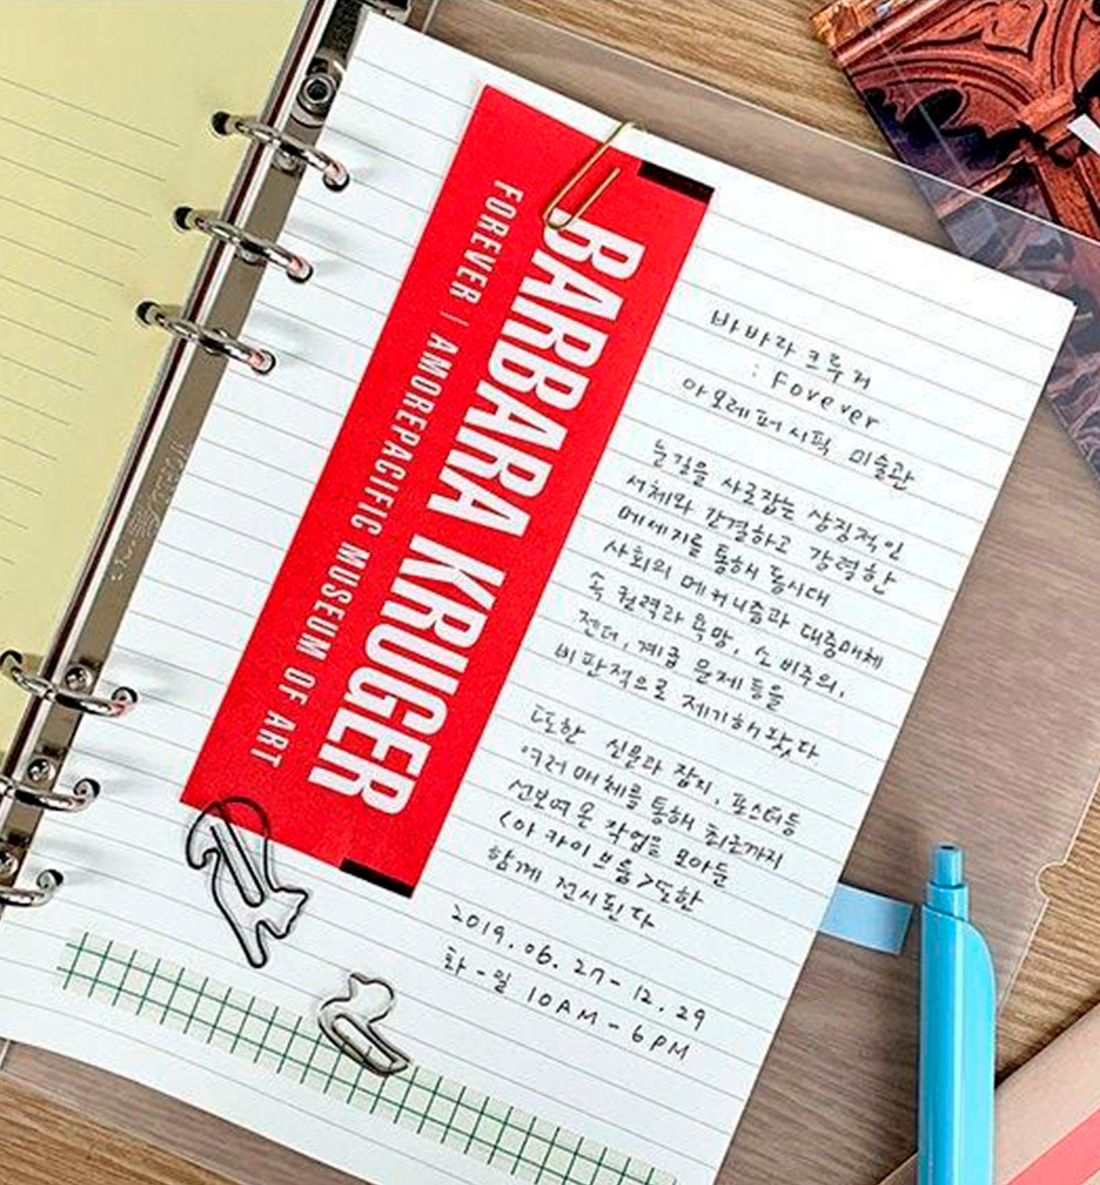 BARBARA KRUGER
FOREVER | AMOREPACIFIC MUSEUM OF ART
바바라 크루거
: Forever
아모레퍼시픽 미술관
눈길을 사로잡는 상징적인
서체와 간결하고 강력한
메세지를 통해 동시대
사회의 메커니즘과 대중매체
속 권력과 욕망, 소비주의,
젠더, 계급 문제 등을
비판적으로 제기해 왔다
또한 신문과 잡지, 포스터등
여러 매체를 통해 최근까지
선보여 온 작업을 모아둔
<아카이브룸>또한
함께 전시된다
2019.06.27-12.29
화-일 10AM-6PM